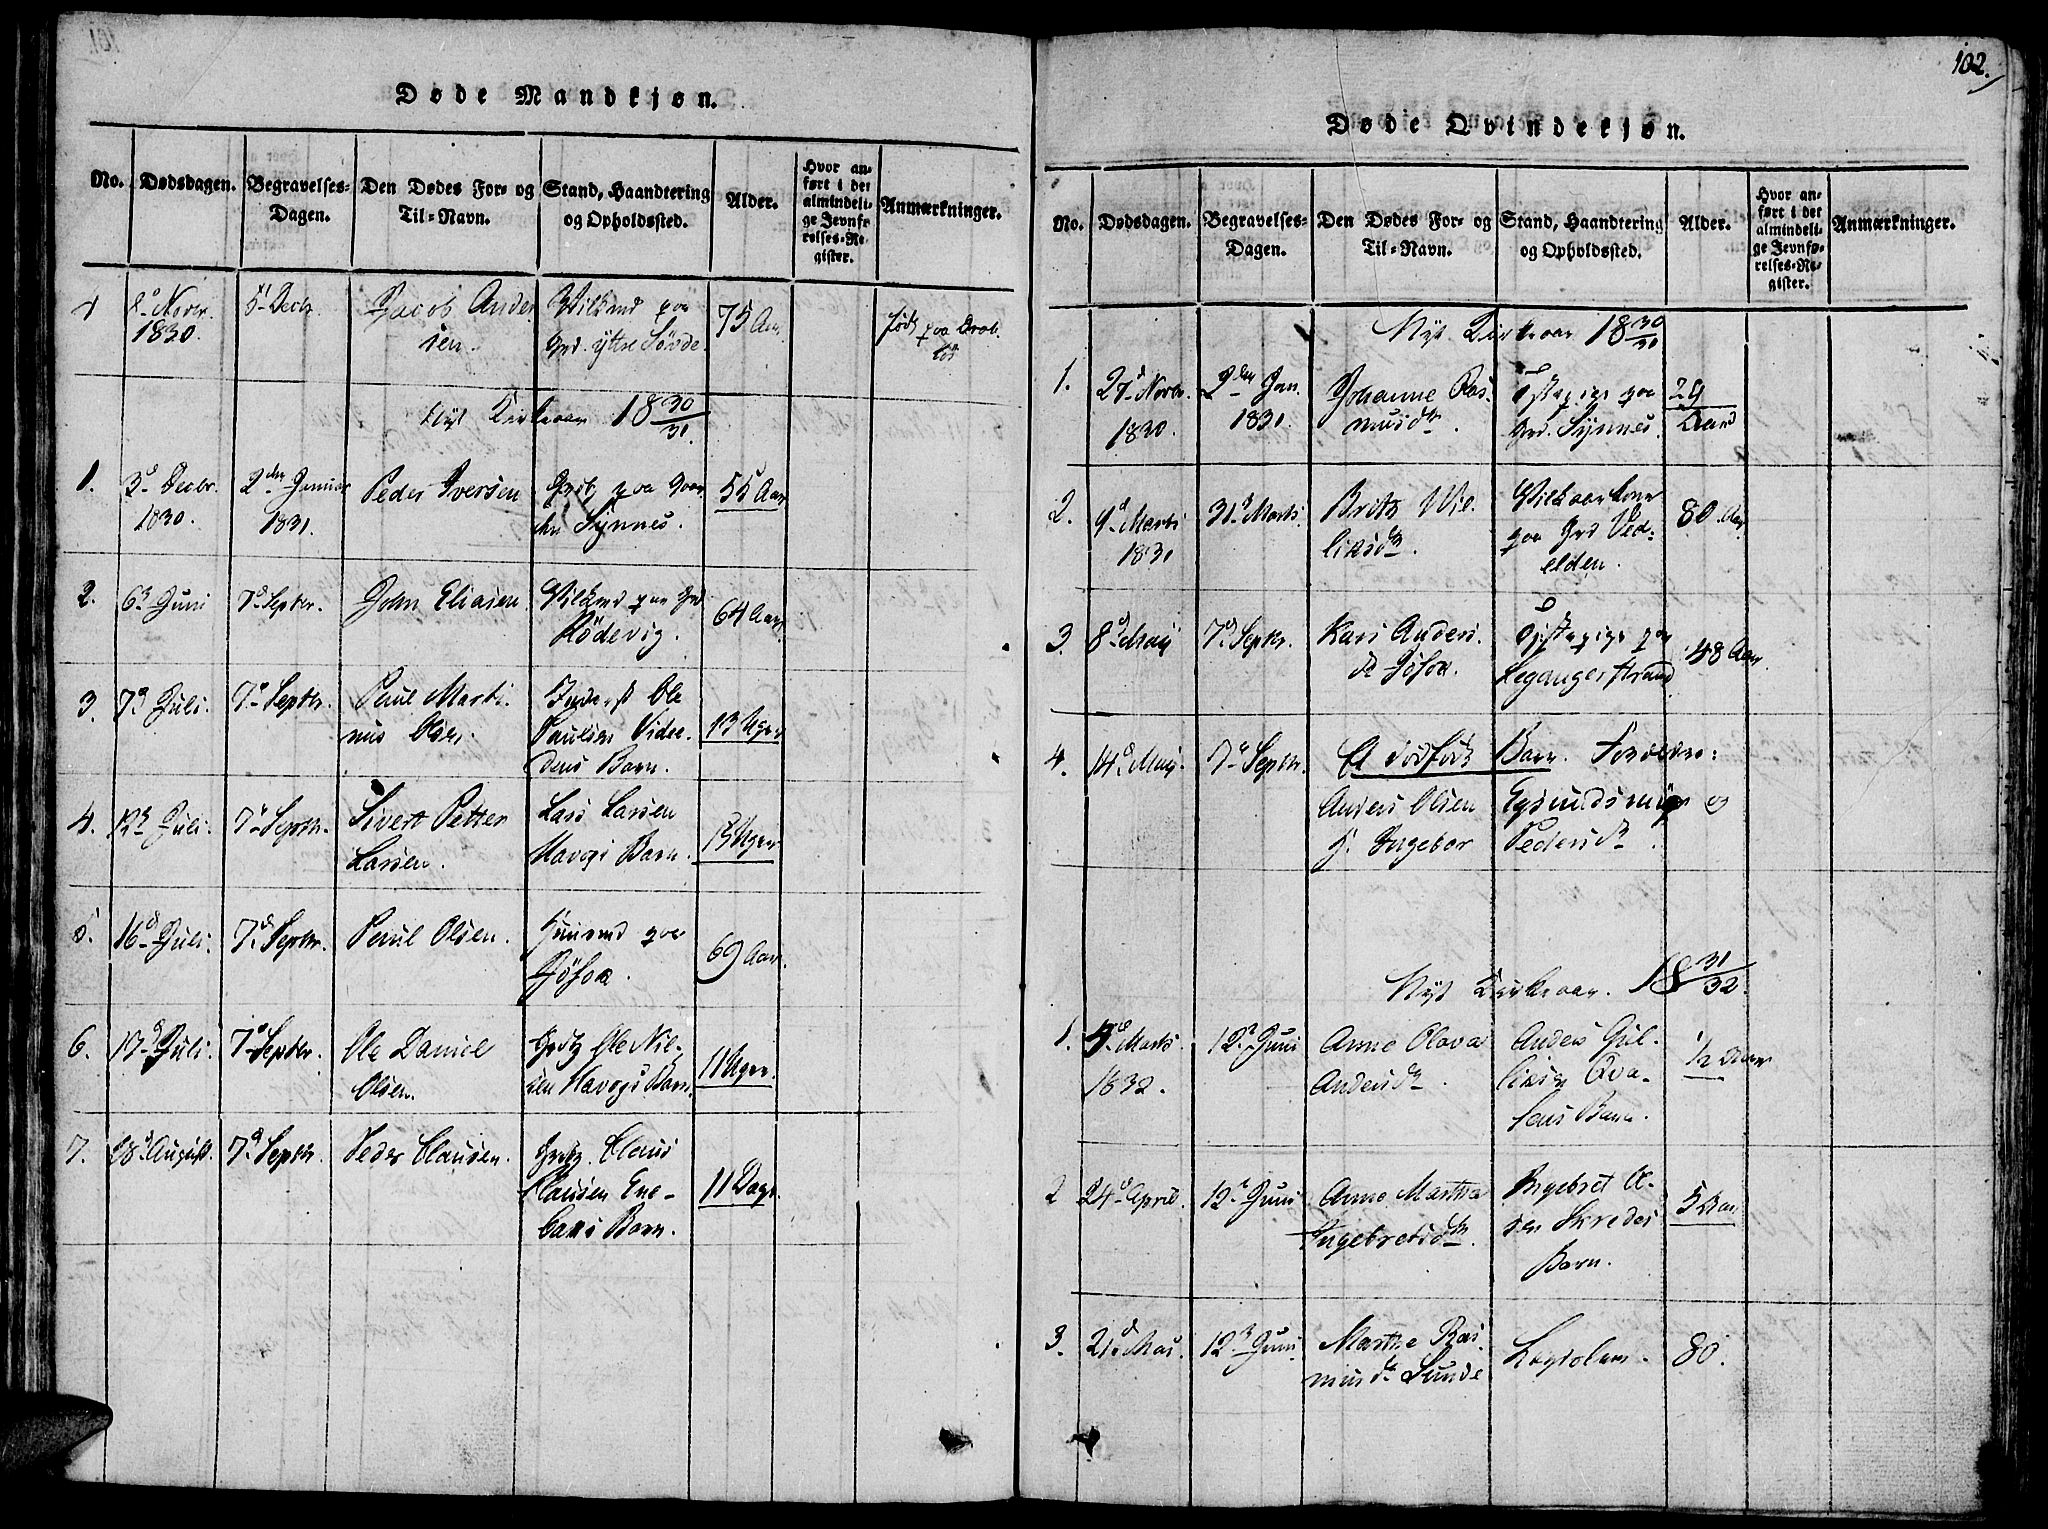 102.
Døde Mandkjøn.
No.
Dødsdagen.
Begravelses-
Dagen.
Den Dødes For- og
Til-Navn.
Stand, Haandtering
og Opholdssted.
Alder.
Hvor an-
ført i det
almindeli-
ge Jevnfø-
relses-Re-
gister.
Anmærkninger.
Novbr.
1830.
5 Decbr.
Jacob Ander
sen.
paa
Grd. yttre Søvde.
75 Aar
født paa
Nyt Kirkeaar 18 30/31.
1.
3d Decbr.
1830.
2den Januar
1831.
Peder Iversen
paa Gaar
den Synnes.
55 Aar
2.
6 Juni
7d Septbr.
John Eliasen
paa Grd
Rødevig.
64 Aar
3.
7d Juli.
7d Septbr.
Paul Marti-
nus Olsen.
Inderst Ole
Paulsen
dens Barn.
13 Uger
4.
12 Juli.
7d Septbr.
Sivert Petter
Larsen.
Lars Larsen
Havogs Barn.
13 Uger
5.
16d Juli.
7d Septbr.
Paul Olsen.
paa
69 Aar.
6.
17d Juli.
7d Septbr.
Ole Daniel
Olsen.
Ole Niel-
sen Havogs Barn.
11 Uger.
7.
28d August.
7d Septbr.
Peder Clausen.
Claus
Clausen Ene-
Barn.
11 Dage.
Døde Qvindekjøn.
No.
Dødsdagen.
Begravelses-
Dagen.
Den Dødes For- og
Til-Navn.
Stand, Haandtering
og Opholdssted.
Alder.
Hvor an-
ført i det
almindeli-
ge Jevnfø-
relses-Re-
gister.
Anmærkninger.
Nyt Kirkeaar 18 30/31
1.
27d Novbr.
1830.
2den Jan.
1831.
Johanne Ras-
musdtr
paa
Grd. Synnes.
29
Aar
2.
9d Marts
1831
31d Marts.
Brite Wil-
liksdtr.
Wilkaarkone
paa Grd Ved-
elden.
80 Aar
3.
8d Maij
7d Septbr.
Kari Anders
paa
Legangerstrand
48 Aar
4.
14d Maij.
7d Septbr.
Et dødfødt Barn. Forældre:
Anders Olsen og
Ingebor Pedersdtr.
Nyt Kirkeaar. 18 31/32.
1.
Marts
1832.
12 Juni
Anne Olava
Andersdtr.
Anders Gul-
liksen Qva-
Barn.
1/2 Aar
2
24d April.
12 Juni
Anne Martha
Ingebretsdtr.
Ingebret Ol-
sen Skredes
Barn.
5 Aar
3.
21d Mai.
12 Juni
Marthe Ras-
musdtr Sunde
Lægdslem.
80.